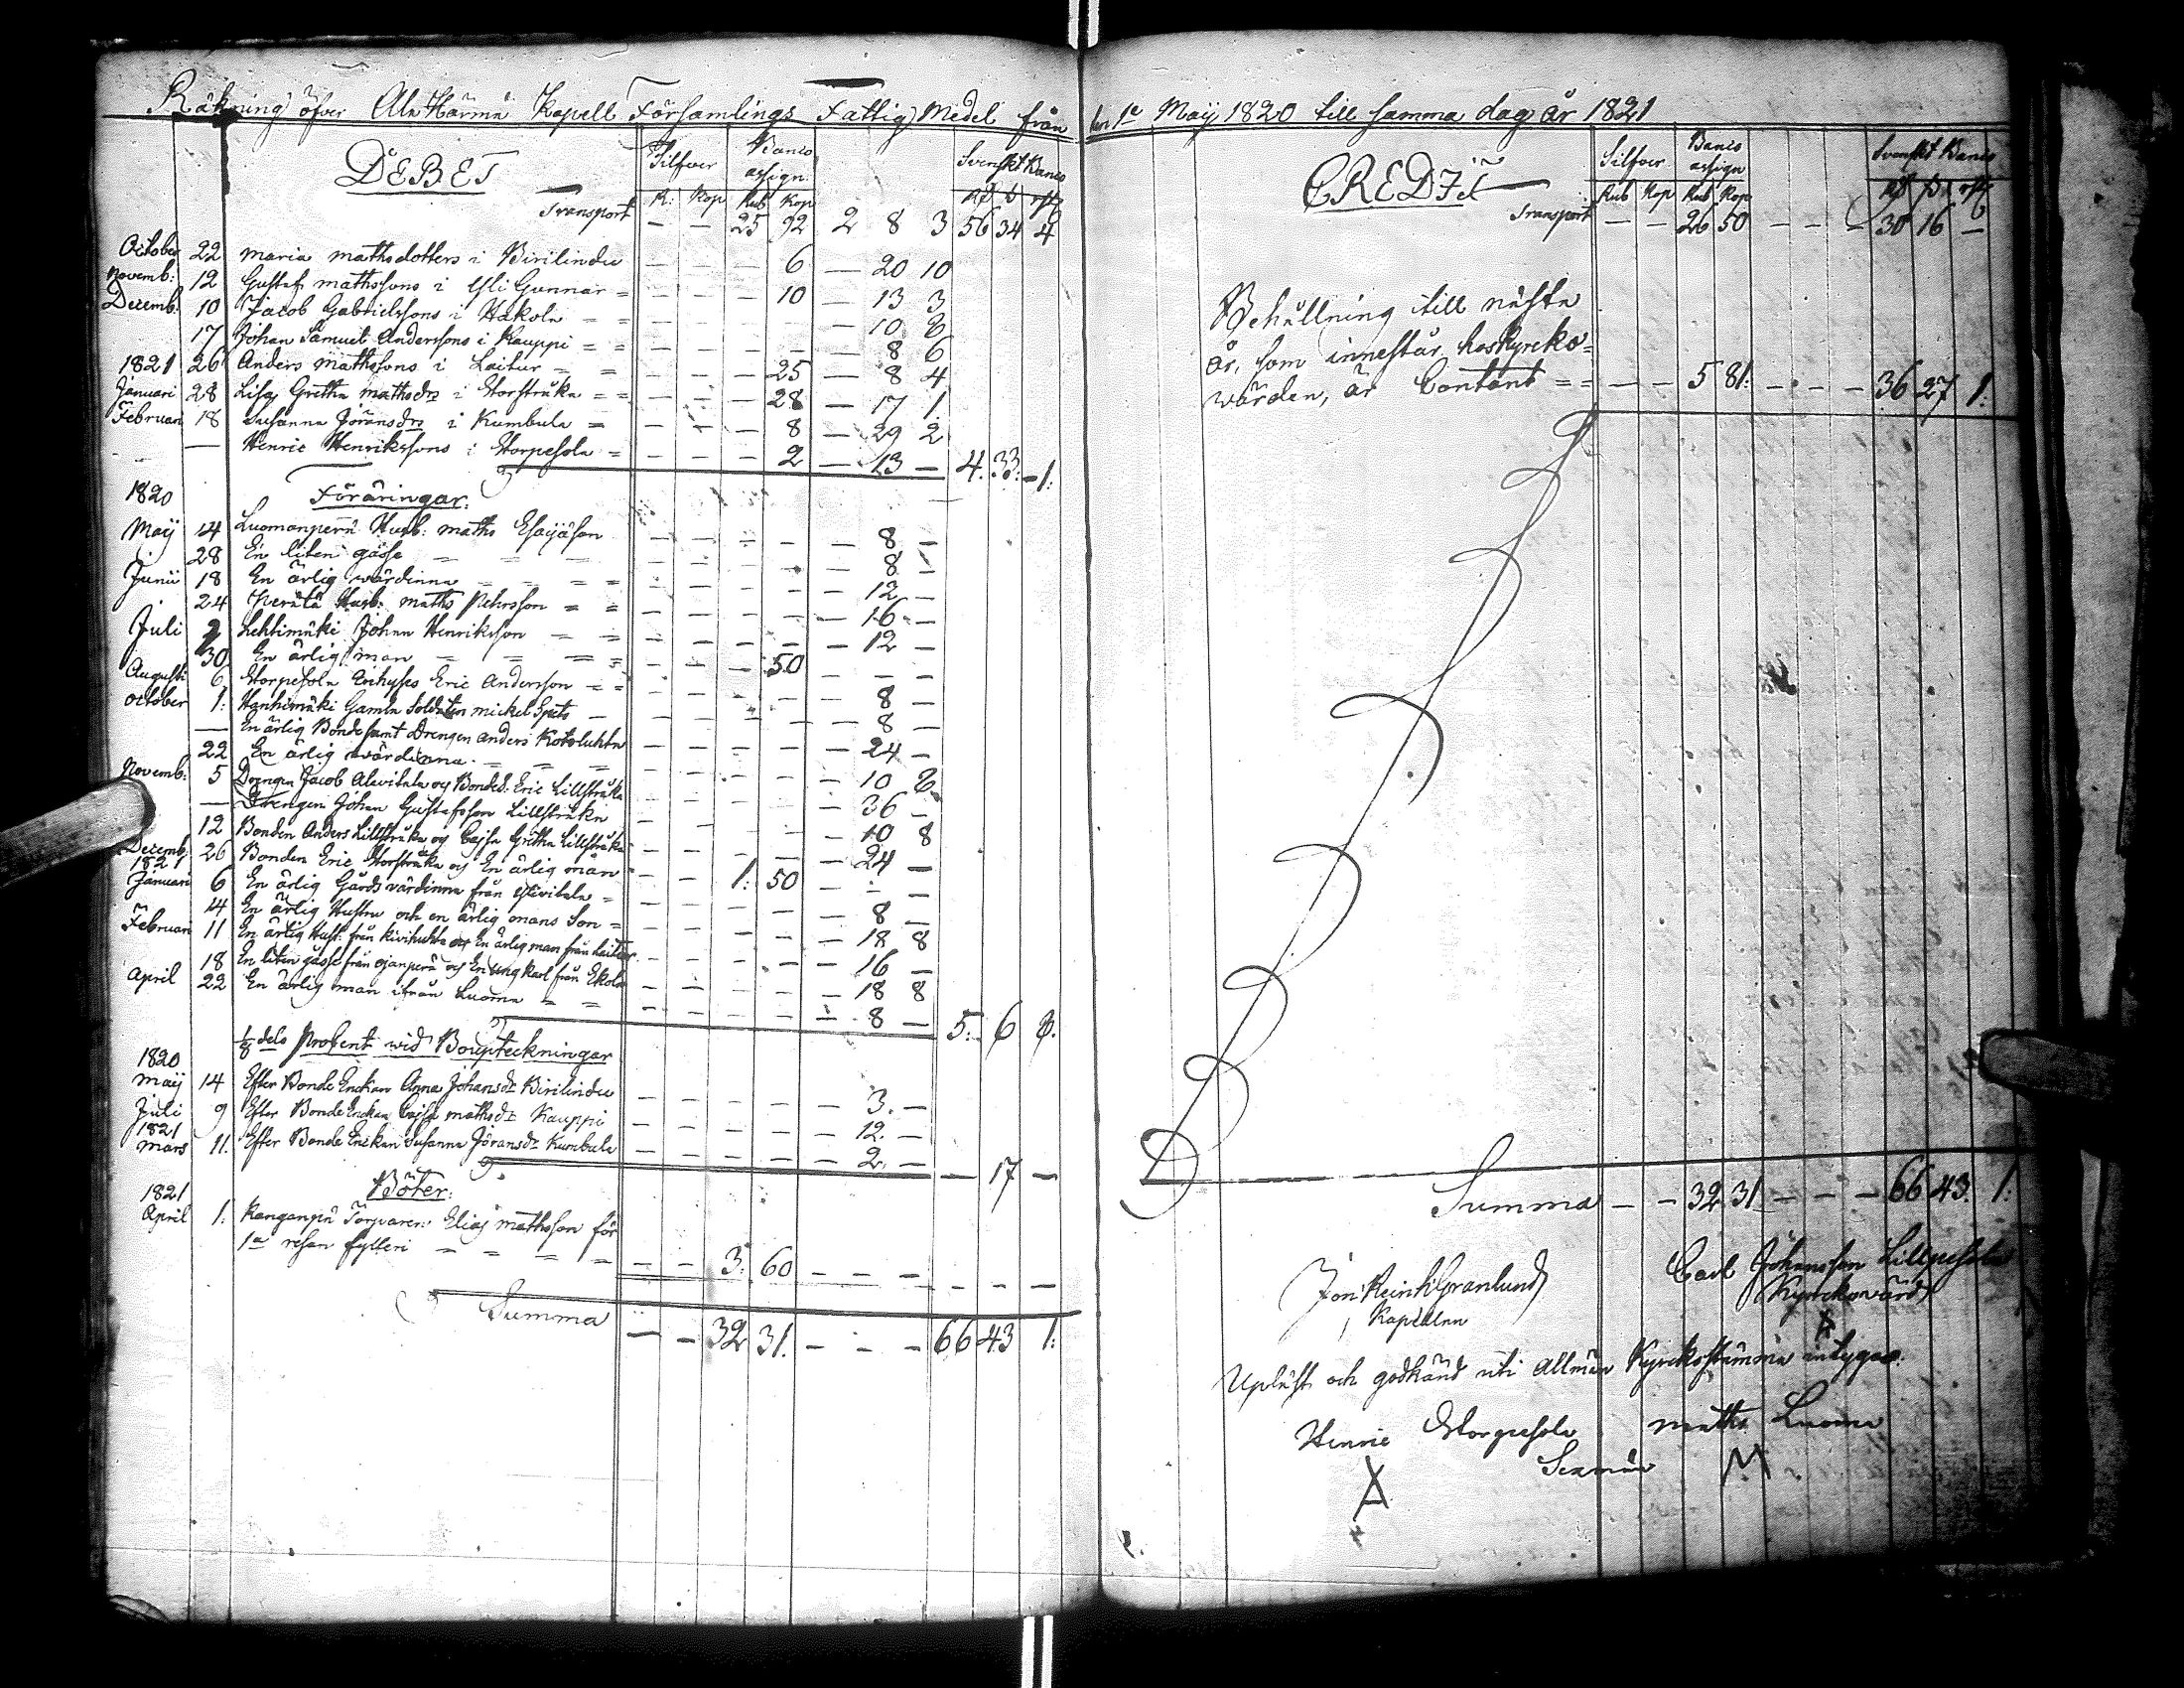 Räkning öfver Ala Härmä Kapell Församlings Fattig Medel från
DEBET Silfver Banco assign: Svenskt Banco
R: Kop Rub Kop Rd ß rst
Transport — — 25 92 2 8 3 56 34 4
October 22 Maria Mathsdotters i Birilindu — — — 6 — 20 10
Novemb: 12 Gustaf Mathssons i Yli Gunnar = — — — 10 — 13 3
Decemb: 10 Jacob Gabrielssons i Hakola = = — — — — — 10 8
17 Johan Samuel Anderssons i Kauppi = = — — — — — 8 6
1821 26 Anders Mathssons i Laitur = = — — — 25 — 8 4
Januari 28 Lisa Gretha Mathsdrs i Storstråka = = — — — 28 — 17 1.
Februari 18 Susanna Jöransdrs i Kumbula = — — — 8 — 29 2
— Henric Henrikssons i Storpesola = — — — 2 — 13 — 4. 33. 1:
1820 Föräringar:
Maij 14 Luomanperä Husb: Maths Esaijäson — — — — — 8 —
28 En liten gåsse — — — — — 8 —
Junii 18 En ärlig wärdinna = = = — — — — — 12 —
24 Perälä Husb: Maths Pehrsson = = — — — — — 16 —
Juli 2 Lehtimäki Johan Henriksson = = — — — — — 12 —
30 En ärlig man = = = — — — 50 — — —
Augusti 6 Storpesola Eric Andersson = = — — — — — 8 —
October 1: Hanhimäki Gamla Soldaten Mickel — — — — — 8 —
— En ärlig Bonde samt Drengen Anders — — — — — 24 —
22 En ärlig wärdinna = = — — — — — 10 8
Novemb: 5 Drengen Jacob Alavitala och Bonded: Eric Lillstråka — — — — — 36 —
— Drengen Johan Gustafsson Lillstråka — — — — — 10 8
12 Bonden Anders Lillstråka och Cajsa Gretha Lillstråka — — — — — 24 —
Decemb. 26 Bonden Eric Storstråka och En ärlig man — — 1: 50 — — —
1821
Januari 6 En ärlig Gårds wärdinna från Ylivitala = — — — — — 8 —
14 En ärlig Hustru och en ärlig mans Son = — — — — — 18 8
Februari 11 En ärlig Hust: från och En ärlig man från Laitur — — — — — 16 —
18 En liten gåsse från Ojanperä och En ung karl från Ekola — — — — — 18 8
April 22 En ärlig man ifrån Luoma = = — — — — — 8 — 5: 6 8.
1/8 dels Procent wid Boupteckningar
1820
Maij 14 Efter Bonde Enckan Anna Johansdr Birilindu — — — — — 3. —
Juli 9 Efter Bonde Enckan Cajsa Mathsdr Kauppi — — — — — 12. —
1821
Mars 11. Efter Bonde Enckan Susanna Jöransdr Kumbula — — — — — 2. — — 17 —
Böter:
1821
April 1: Kanganpä Torparen: Elias Mathsson för
1a resan fylleri = = = = — — 3: 60 — — — — — —
Summa — — 32 31. — — — 66 43 1:
den 1e Maij 1820 till samma dag år 1821
CREDIT Silfver Banco assign Svenskt Banco
Rub Kop Rub Kop Rd ß rst
Transport — — 26 50 — — — 30 16 —
Behållning till nästa
år, som innestår hos kyrcko=
wärden, är Contant = = — — 5 81: — — — 36 27 1:
Summa — — 32 31 — — — 66 43. 1:
Jon Reinh Granlund
Kapellan
Carl Johansson Lillpesola
Kyrckowärd
Upläst och godkänd uti Allmän Kyrckostämma intygas:
Henric Storpesola Maths Luoma
Sexmän M